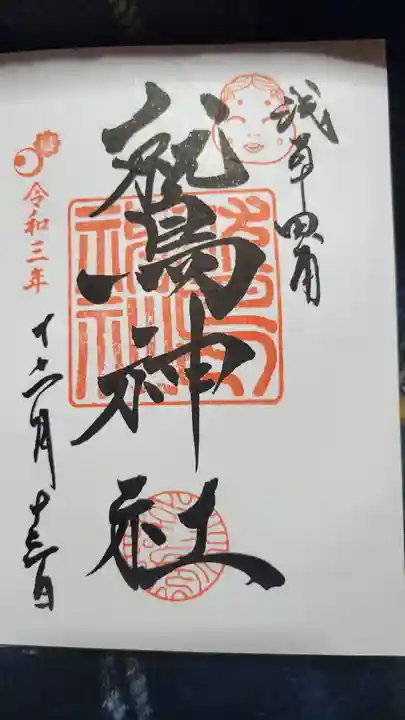 浅草田甫
鷲神社
令和三年
十二月十三日